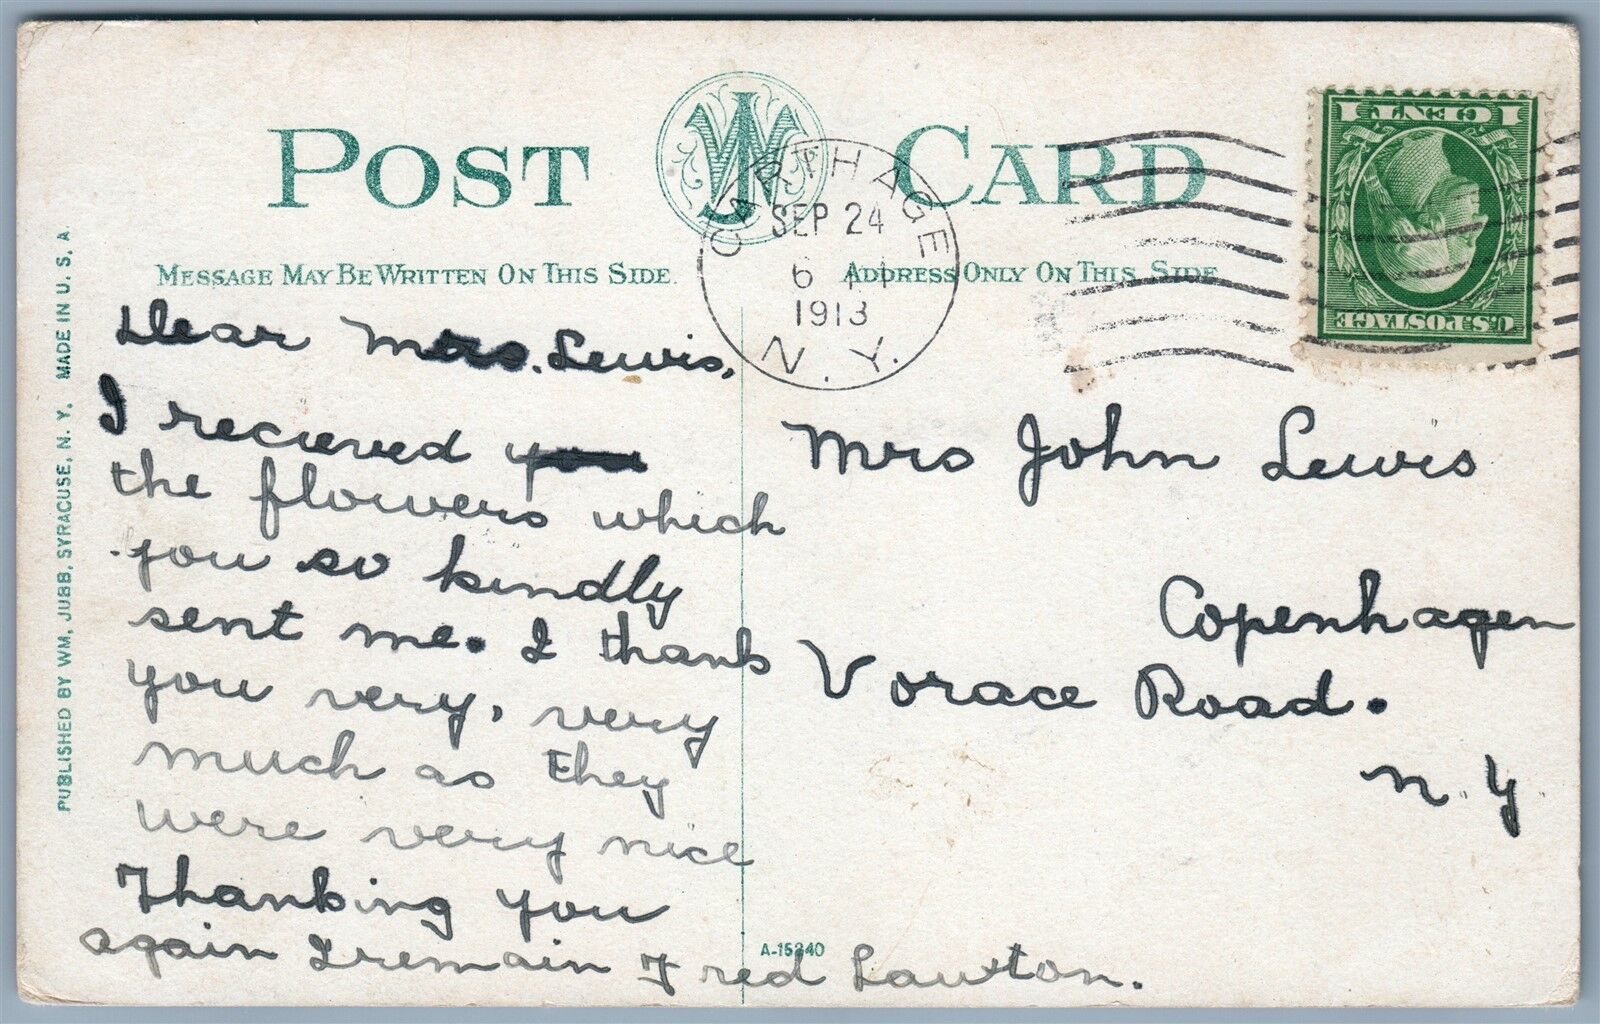 POST CARD
MESSAGE MAY BE WRITTEN ON THIS SIDE.
ADDRESS ONLY ON THIS SIDE
CARTHAGE
SEP 24
6
1913
N.Y.
1 CENT 1
U.S. POSTAGE
PUBLISHED BY WM. JUBB, SYRACUSE, N. Y. MADE IN U. S. A.
Dear Mrs. Lewis,
I recieved you
the flowers which
you so kindly
sent me. I thank
you very, very
much as they
were very nice
Thanking you
again I remain Fred Lawton.
Mrs John Lewis
Copenhagen
Vorace Road.
N. Y.
A-15340